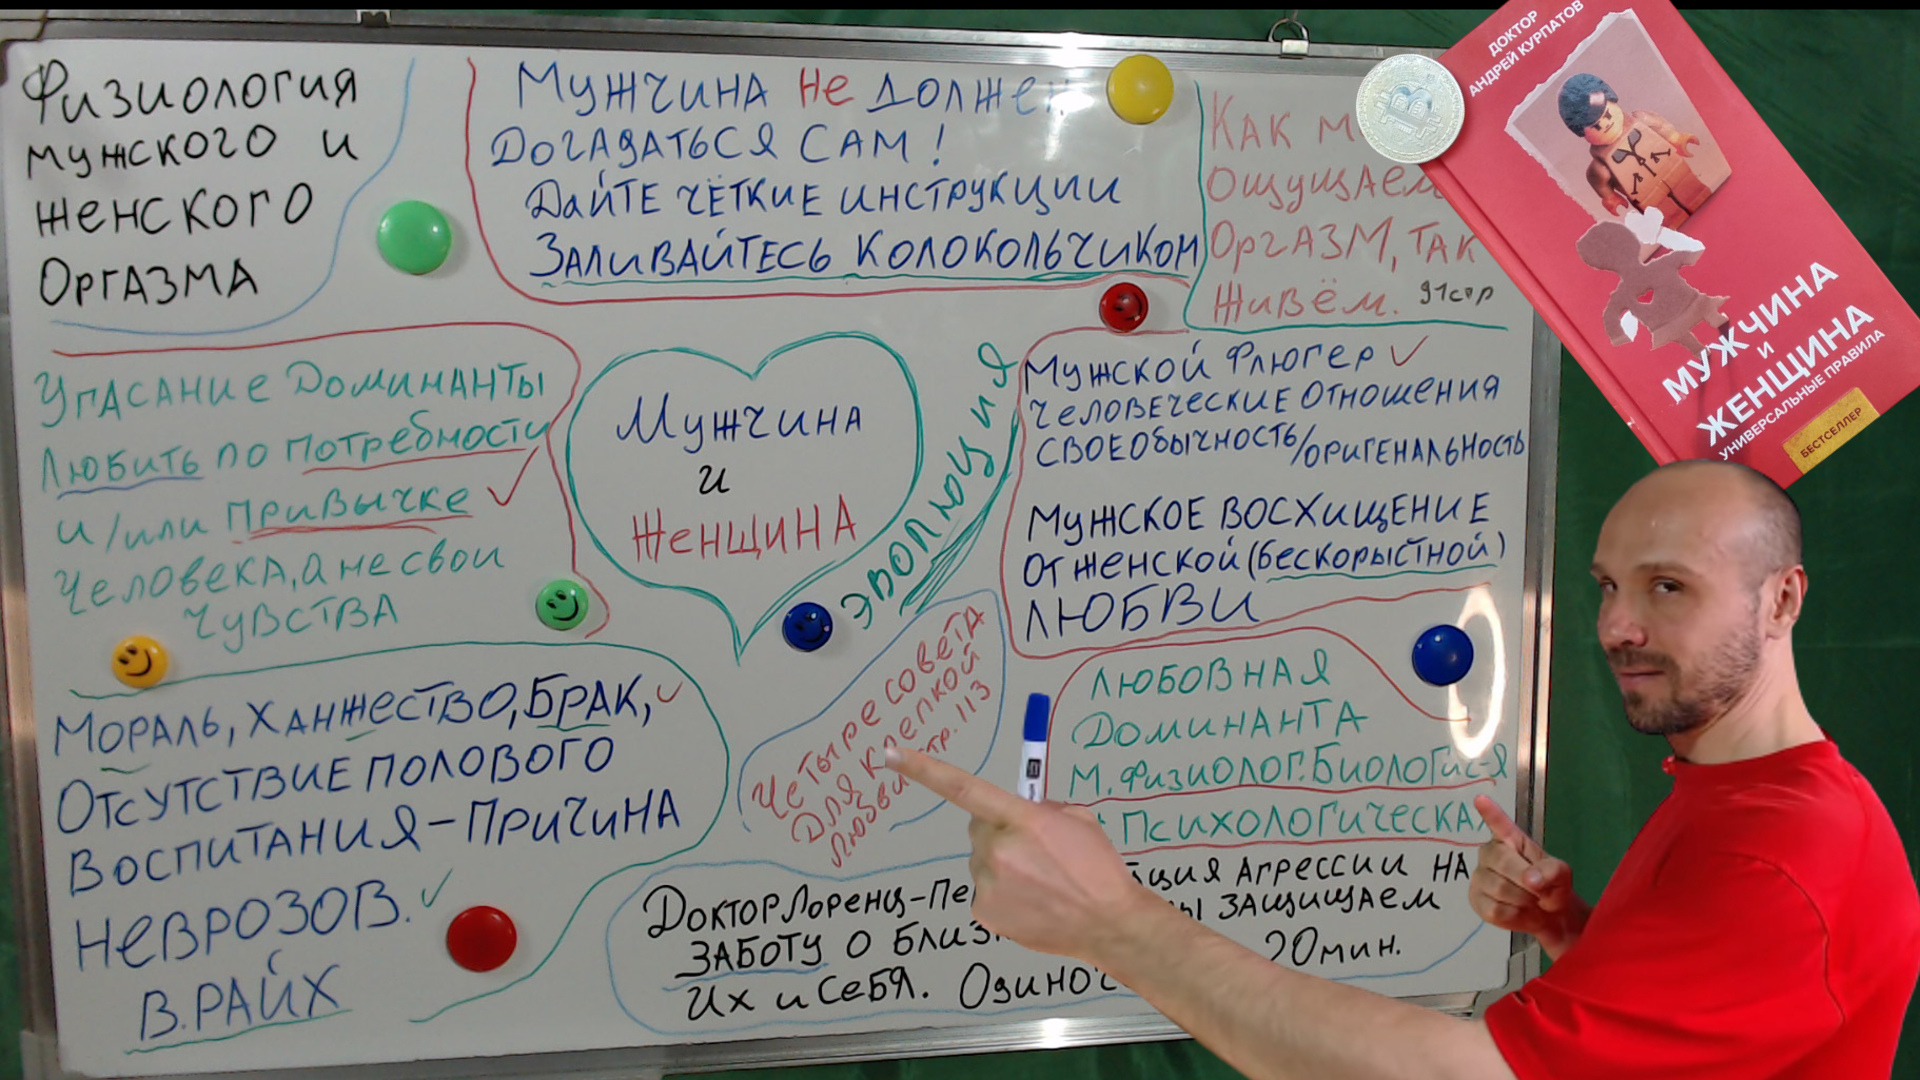 Физиология
мужского и
женского
Оргазма
Мужчина не должен
Догадаться сам!
Дайте чёткие инструкции
Заливайтесь колокольчиком
Как м
ощущаем
Оргазм, так
живём. 91стр
ДОКТОР
АНДРЕЙ КУРПАТОВ
МУЖЧИНА
И
ЖЕНЩИНА
УНИВЕРСАЛЬНЫЕ ПРАВИЛА
БЕСТСЕЛЛЕР
Упасание Доминанты
Любить по потребности
и/или привычке
Человека, а не свои
чувства
Мужчина
и
Женщина
эволюция
Мужской Флюгер
Человеческие отношения
своеобычность/оригенальность
Мужское восхищение
от женской (бескорыстной)
любви
Мораль, Ханжество, Брак,
Отсутствие полового
Воспитания – причина
неврозов.
В. Райх
Четыре совета
для крепкой
любви стр. 113
Любовная
Доминанта
М. Физиолог. Биологис-я
Психологическая
Доктор Лоренц – Пе ция агрессии на
заботу о близ ы защищаем
их и себя. Одиноч 20мин.